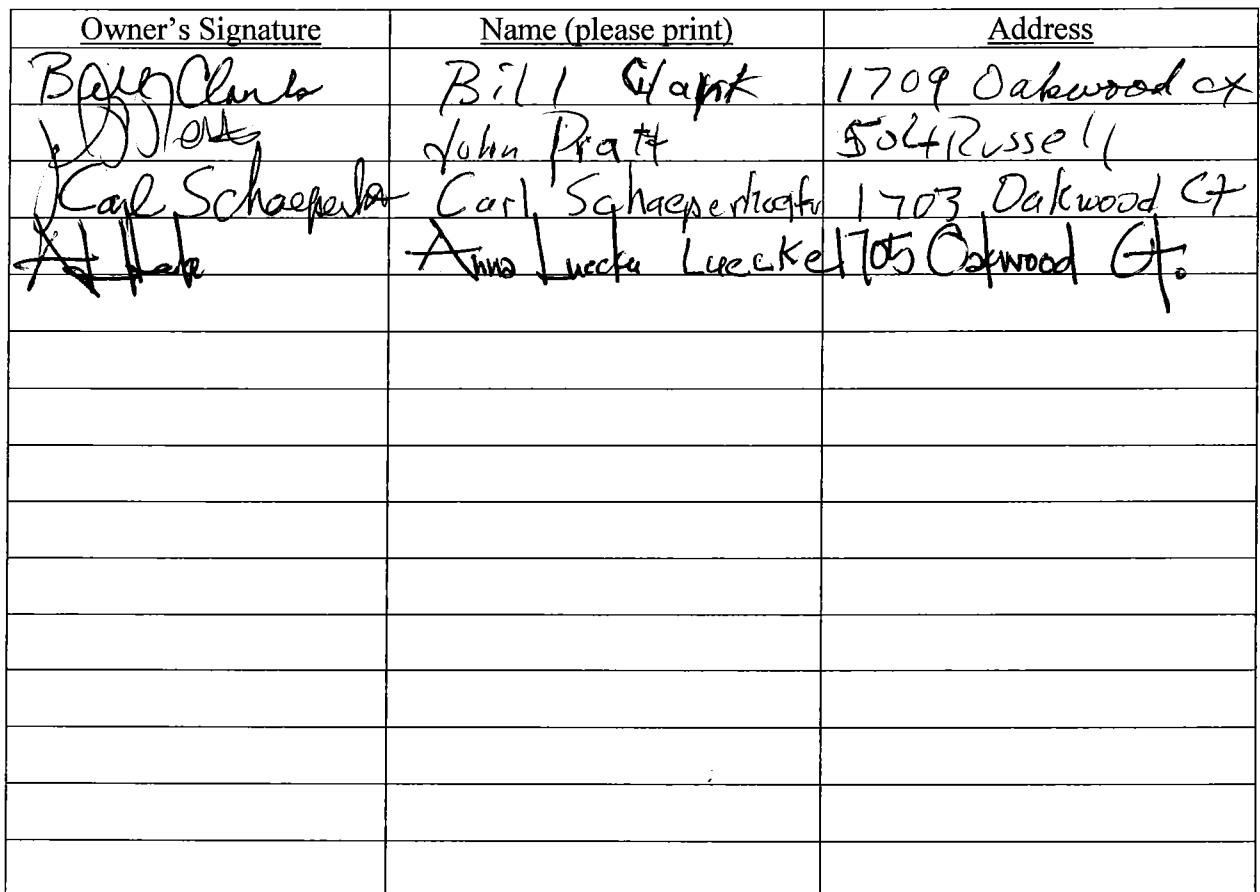 Owner's Signature Name (please print) Address
Bill Clark 1709 Oakwood ct
John Pratt 504 Russell
Carl Schaeperko Carl 1703 Oakwood Ct
Anna Luecke Luecke 1705 Oakwood Ct.